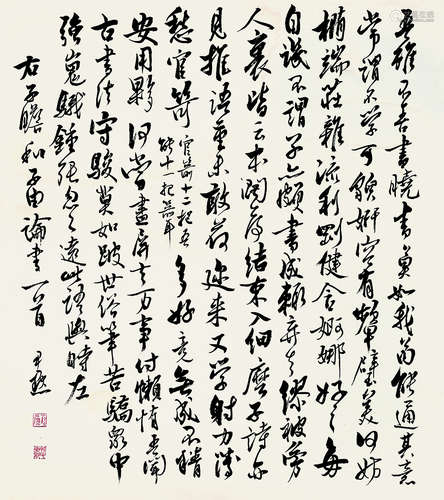 吾雖不善書曉書莫如我苟能通其意
常謂不學可貌妍容有顰璧美何妨
橢端莊雜流利剛健含婀娜好之每
自譏不謂子亦頗書成輒棄去繆被旁
人裹皆云本闊落結束入細麼子詩亦
見推語重未敢荷邇來又學射力薄
愁官笴官箭十二把吾能十一把箭耳多好竟無成不精
安用夥何當盡屏去萬事付懶惰吾聞
古書法守駿莫如跛世俗筆苦驕衆中
強嵬騀鍾張忽已遠此語與時左
右子瞻和子由論書一首 尹默